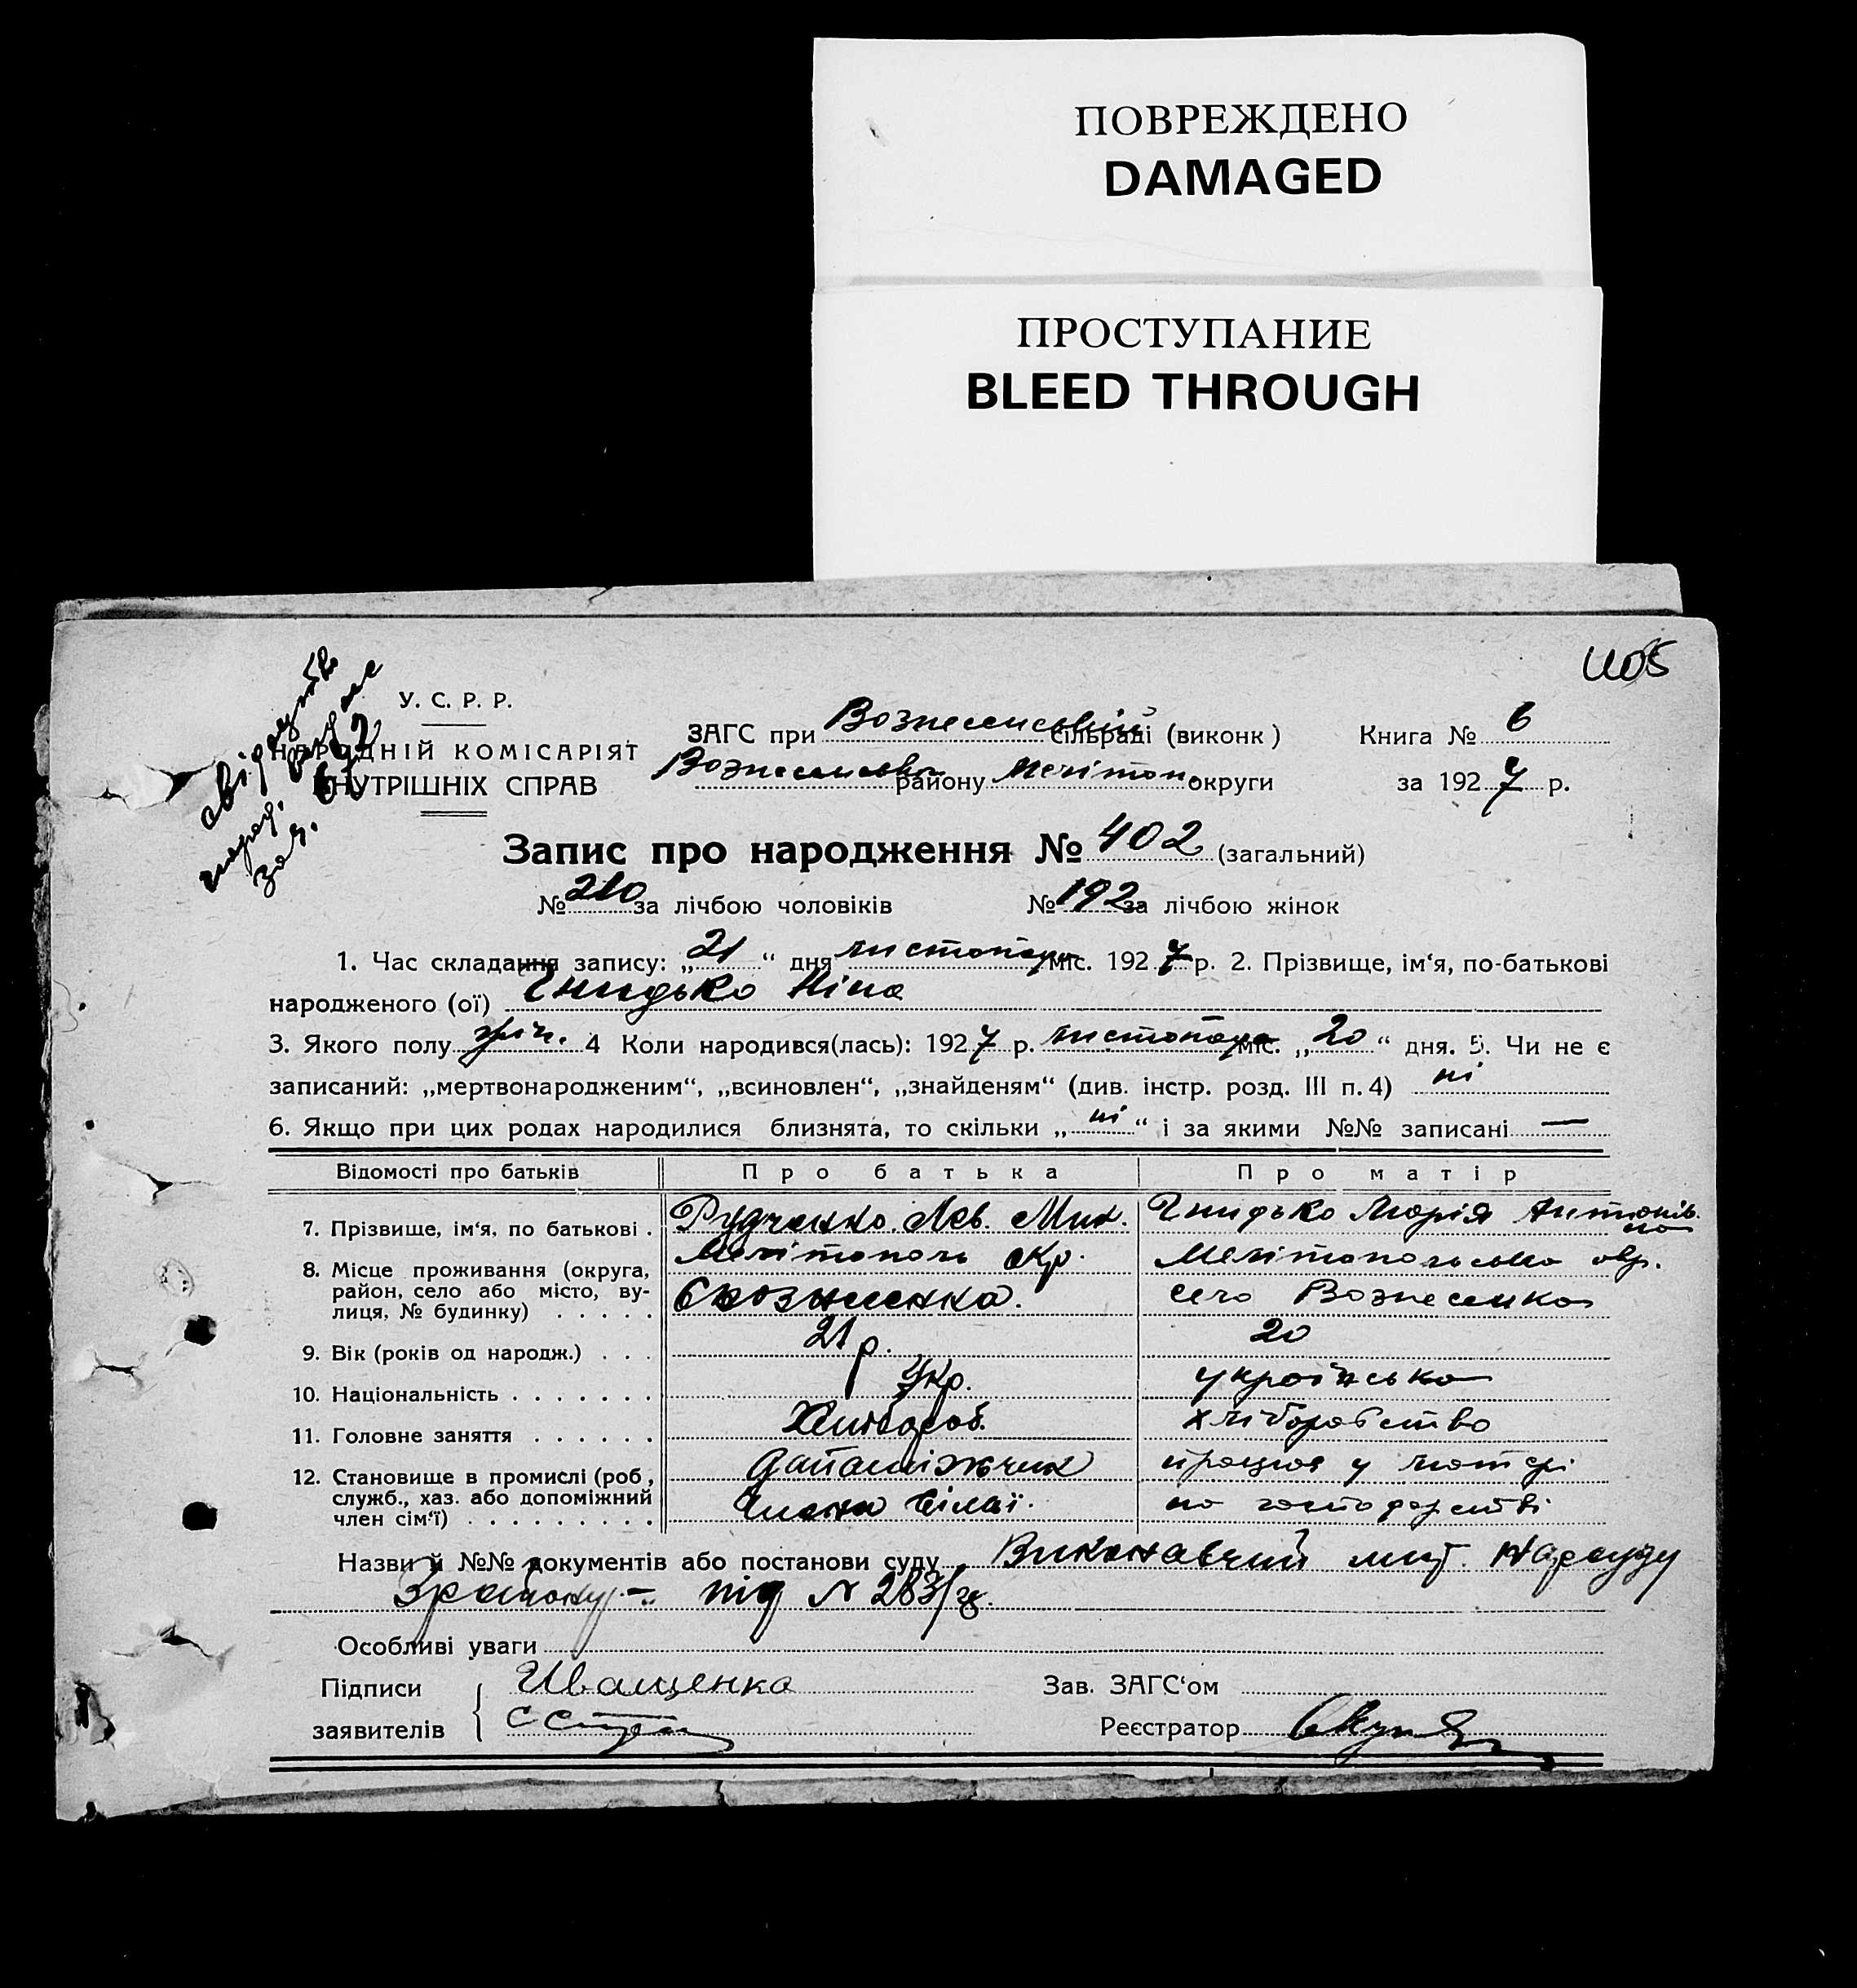 ПОВРЕЖДЕНО
DAMAGED
ПРОСТУПАНИЕ
BLEED THROUGH
У. С. Р. Р.
НАРОДНІЙ КОМІСАРІЯТ
ВНУТРІШНІХ СПРАВ
ЗАГС при Вознесенській сільраді (виконк)
Книга № 6
Вознесенська району Мелітоп. округи
за 1927 р.
Запис про народження № 402 (загальний)
№ 210 за лічбою чоловіків № 192 за лічбою жінок
1. Час складання запису: „21“ дня листопада міс. 1927 р. 2. Прізвище, ім‘я, по-батькові
народженого (ої) Гнидько Ніна
3. Якого полу жін. 4 Коли народився(лась): 1927 р. листопада міс. „20“ дня. 5. Чи не є
записаний: „мертвонародженим“, „всиновлен“, „знайденям“ (див. інстр. розд. III п. 4) ні
6. Якщо при цих родах народилися близнята, то скільки „ні“ і за якими №№ записані —
Відомості про батьків Про батька Про матір
7. Прізвище, ім‘я, по батькові . Рудченко Лев. Мик. Гнидько Марія Антонівна
8. Місце проживання (округа, район, село або місто, вулиця, № будинку) . . . . .
Мелітополь окр. Мелітопольська окр.
с Вознесенка. село Вознесенка
9. Вік (років од народж.) . . . 21 р. 20
10. Національність . . . . . . . Укр. українська
11. Головне заняття . . . . . . Хлібороб. хліборобство
12. Становище в промислі (роб, служб., хаз. або допоміжний член сім‘ї) . . . . . . . . .
працює у матері
член сімї. на господарстві
Назви й №№ документів або постанови суду Виконавчий лист Нарсуду
під № 283/
Особливі уваги
Підписи заявителів
Иващенко
Зав. ЗАГС‘ом
Реєстратор